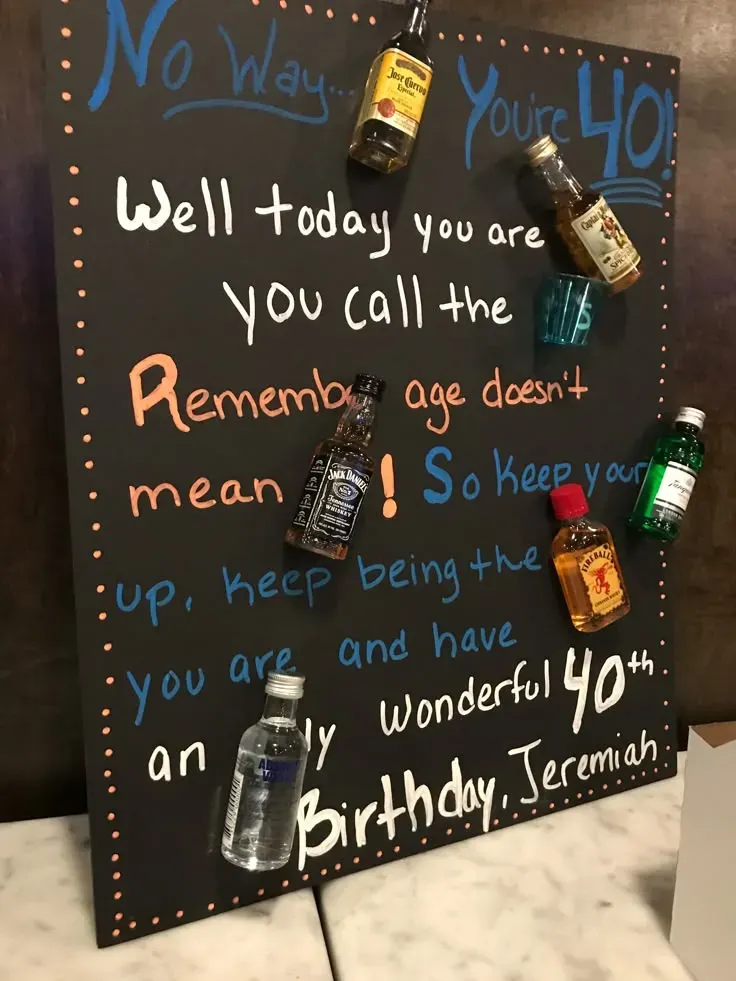 No Way... You're 40!
Jose Cuervo
Especial
Well today you are
Captain
you call the
S
Rememb age doesn't
JACK DANIEL'S
Tennessee
WHISKEY
mean ! So keep your
Tanqueray
FIREBALL
up, keep being the
you are and have
ABSOLUT
VODKA
an ly wonderful 40th
Birthday, Jeremiah